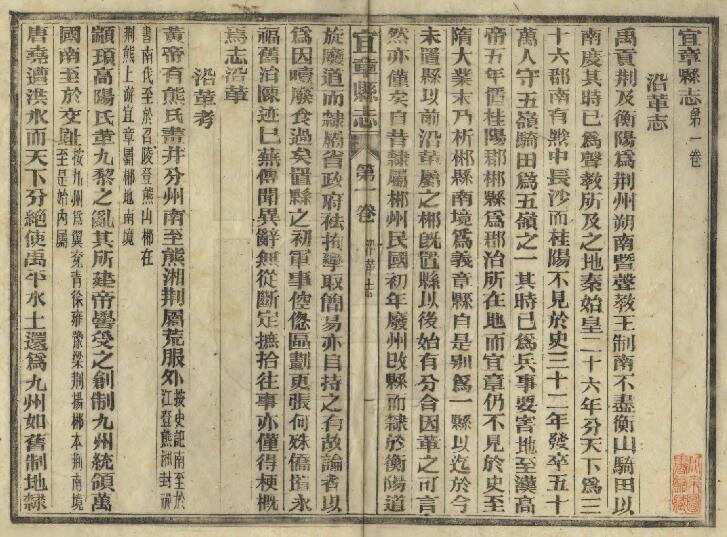 宜章縣志第一卷
沿革志
禹貢荆及衡陽爲荆州朔南暨聲教王制南不盡衡山騎田以
南度其時已爲聲教所及之地秦始皇二十六年分天下爲三
十六郡南有黔中長沙而桂陽不見於史三十二年發卒五十
萬人守五嶺騎田爲五嶺之一其時已爲兵事要害地至漢高
帝五年置桂陽郡郴縣爲郡治所在地而宜章仍不見於史至
隋大業末乃析郴縣南境爲義章縣自是别爲一縣以迄於今
未置縣以前沿革屬之郴旣置縣以後始有分合因革之可言
然亦僅矣自昔隸屬郴州民國初年廢州改縣而隸於衡陽道
宜章縣志 第一卷 沿革志
旋廢道而隸屬省政府祛拘攣取簡易亦自持之有故論者以
爲因噎廢食過矣置縣之初軍事倥傯區劃更張何殊僑㨿永
福舊治陳迹已蕪傳聞異辭無從斷定摭拾往事亦僅得梗概
焉志沿革
沿革考
黃帝有熊氏畫井分州南至熊湘荆屬荒服外按史記南至於江登熊湘封禪
書南伐至於召陵登熊山郴在
荆熊上游宜章屬郴地南境
顓頊高陽氏革九黎之亂其所建帝嚳受之創制九州統領萬
國南至於交阯按九州爲冀兖青徐雍豫梁荆揚郴本荆南境至是始內屬
唐堯遭洪水而天下分絶使禹平水土還爲九州如舊制地隸